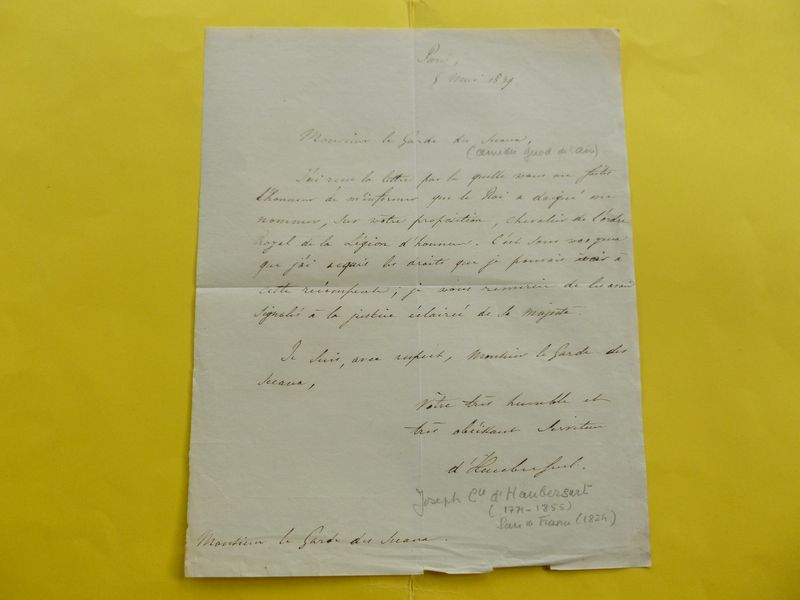 Paris,
8 Mai 1839
Monsieur le Garde des Sceaux,
(amédée Girod de l'ain)
J'ai reçu la lettre par la quelle vous me faites
l'honneur de m'informer que le Roi a daigné me
nommer, sur votre proposition, chevalier de l'ordre
Royal de la Légion d'honneur. C'est sous vos yeux
que j'ai acquis les droits que je pouvais avoir à
cette récompense; je vous remercie de les avoir
signalés à la justice éclairée de sa majesté.
Je suis, avec respect, Monsieur le Garde des
Sceaux,
Votre très humble et
très obéissant Serviteur
d'Haubersart.
Joseph Cte d'Haubersart
(1771-1855)
Pair de France (1824)
Monsieur le Garde des Sceaux.